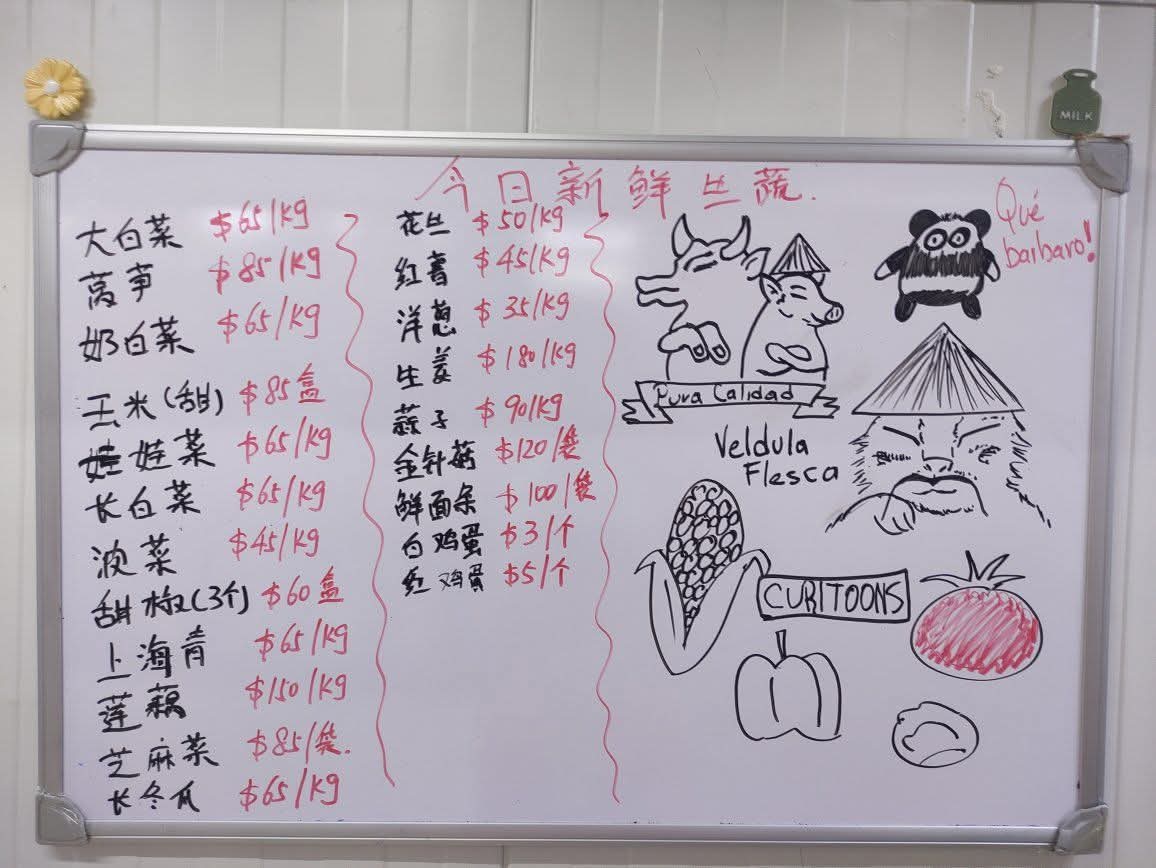 今日新鲜丝蔬.
大白菜 $65/kg
莴笋 $85/kg
奶白菜 $65/kg
玉米(甜) $85盒
娃菜 $65/kg
长白菜 $65/kg
波菜 $45/kg
甜椒(3个) $60盒
上海青 $65/kg
莲藕 $150/kg
芝麻菜 $85/袋.
长冬瓜 $65/kg
花丝 $50/kg
红薯 $45/kg
洋葱 $35/kg
生姜 $180/kg
蒜子 $90/kg
金针菇 $120/袋
鲜面条 $100/袋
白鸡蛋 $3/个
红鸡蛋 $5/个
Qué
barbaro!
Pura Calidad
Veldula
Flesca
CURITOONS
MILK